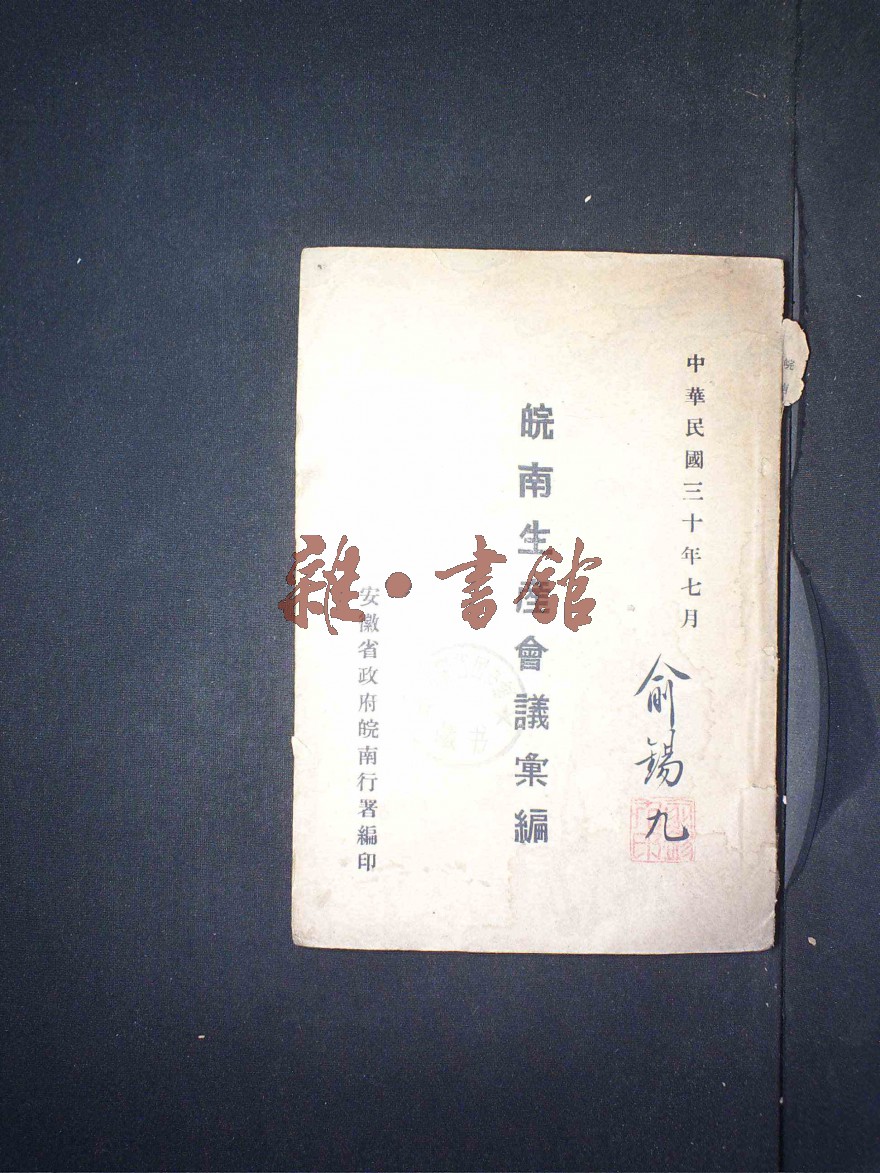 中華民國三十年七月
俞錫九
皖南生產會議彙編
安徽省政府皖南行署編印
雜·書館
皖